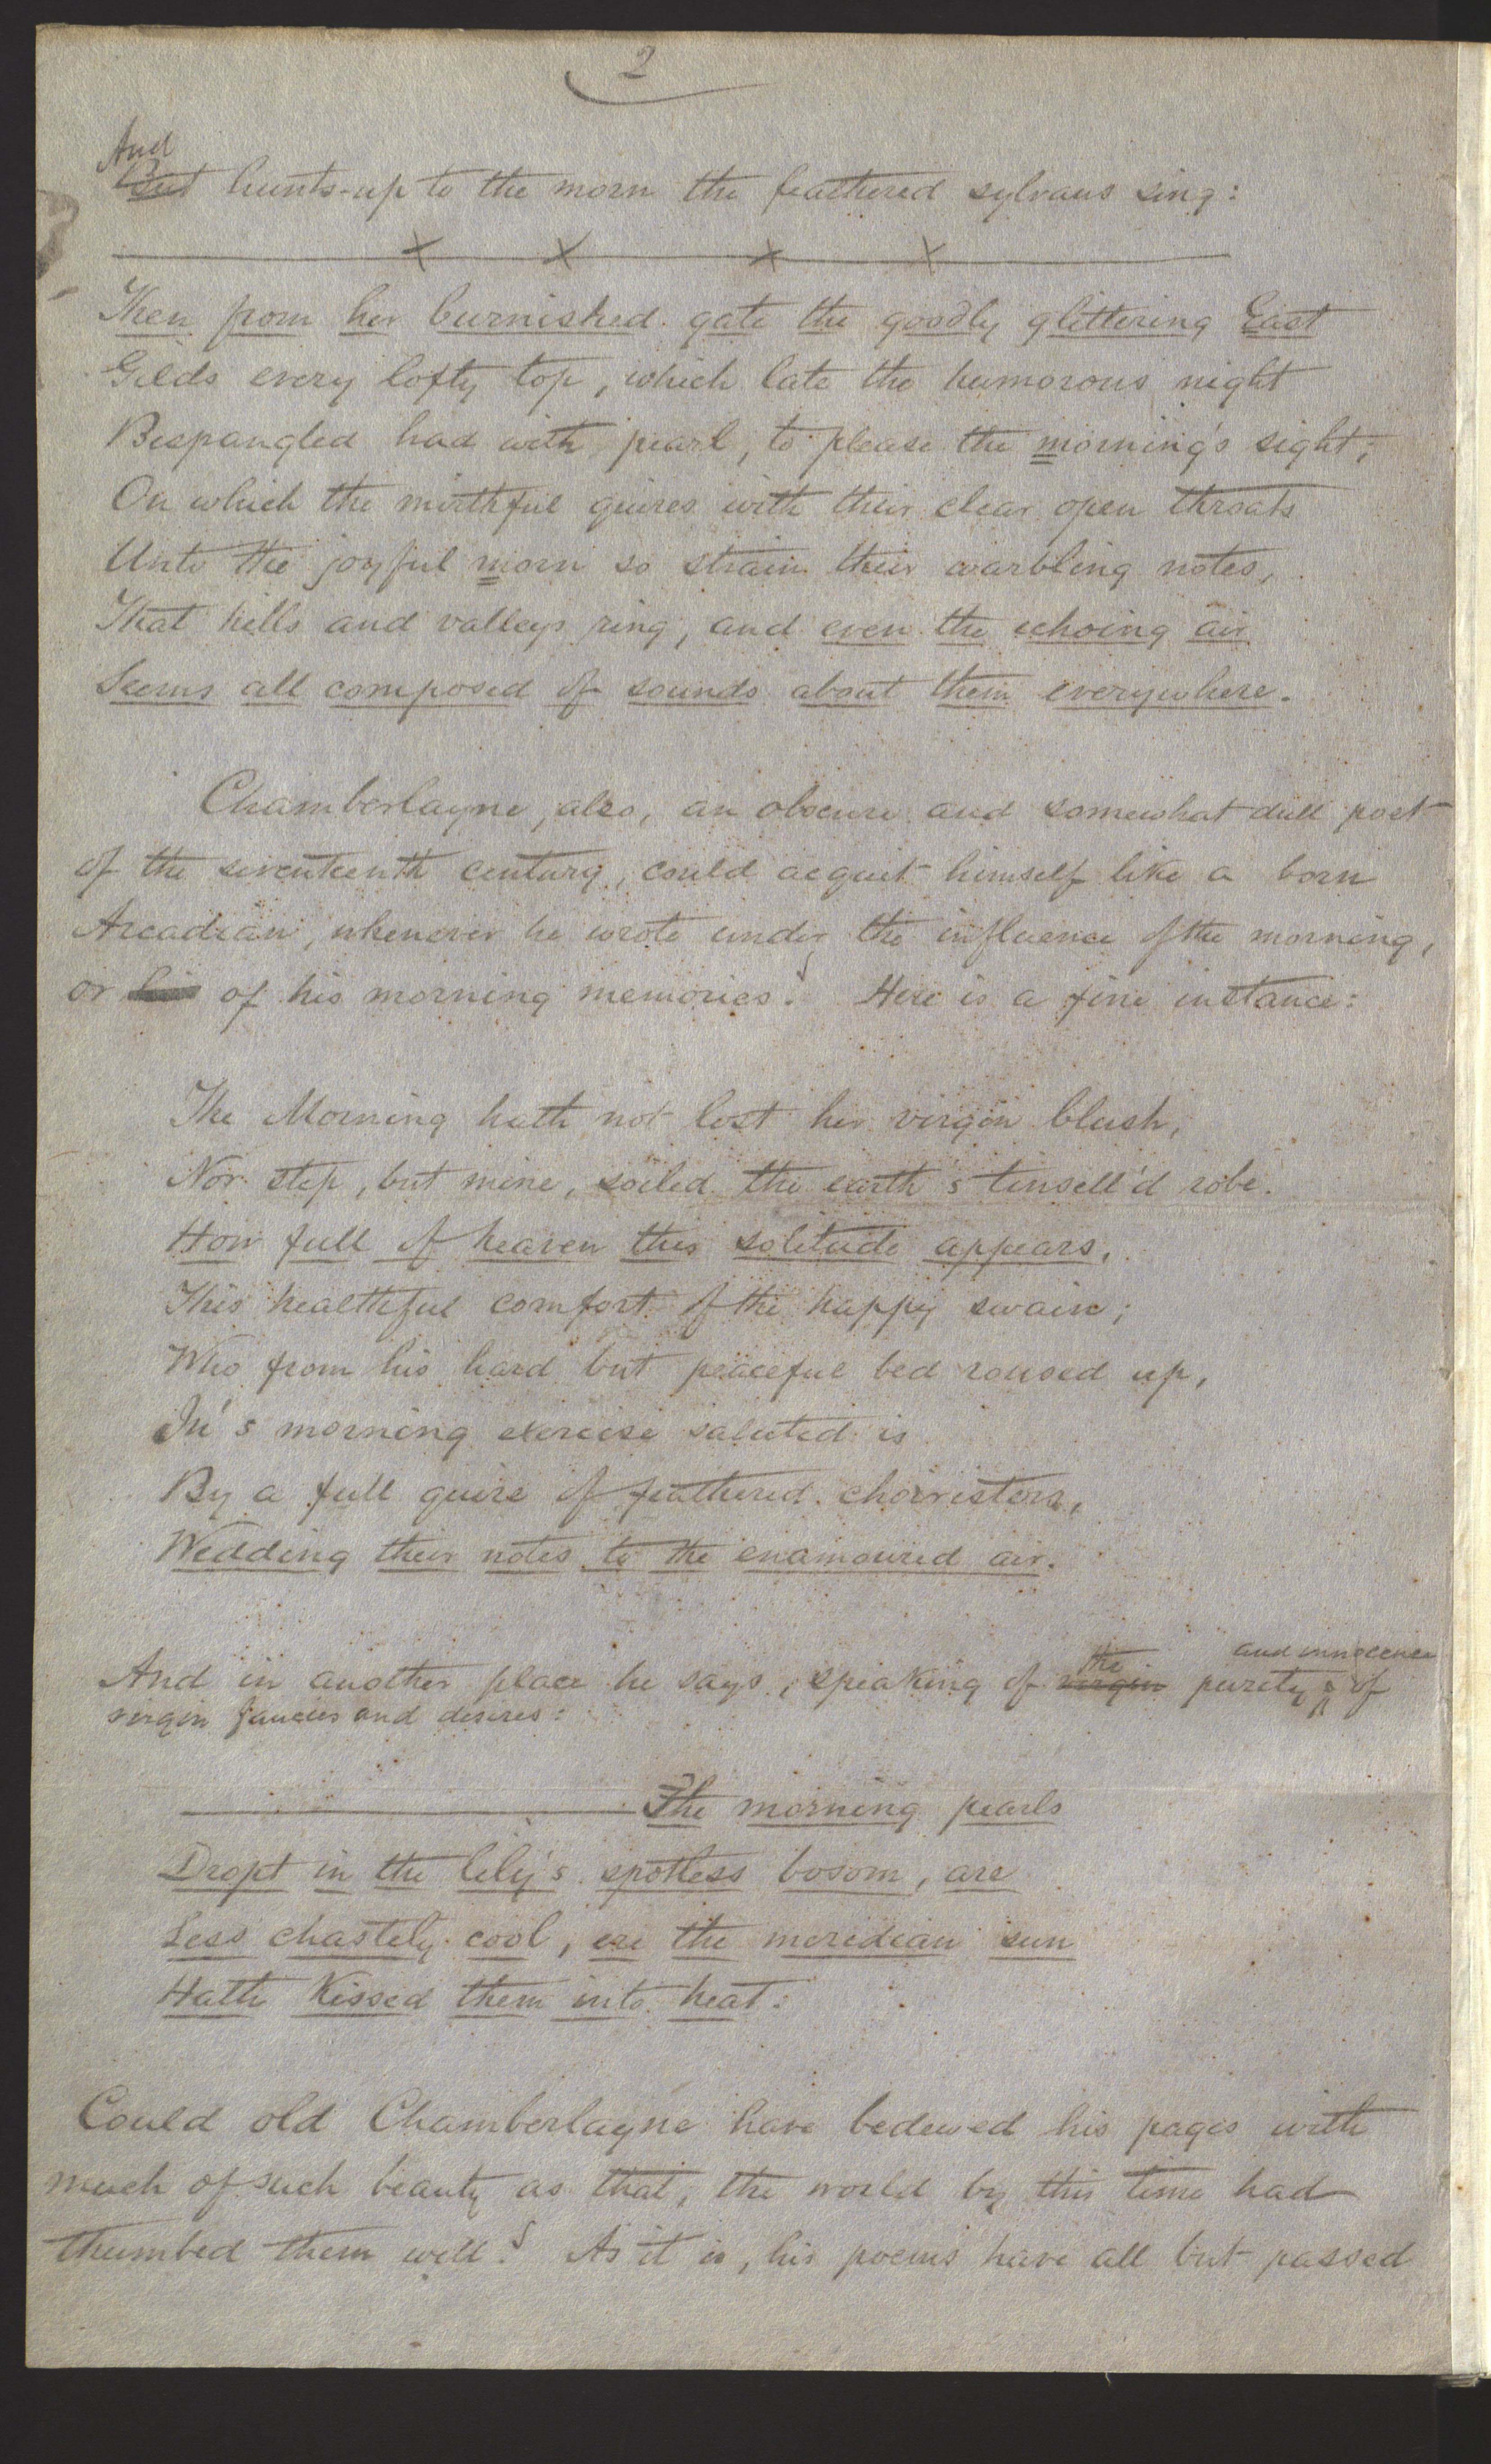 2
And
But hunts-up to the morn the feathered sylvans sing:
x x x x
Then from her burnished gate the goodly glittering East
Gilds every lofty top, which late the humorous night
Bespangled had with pearl, to please the morning's sight;
On which the mirthful quires with their clear open throats
Unto the joyful morn so strain their warbling notes,
That hills and valleys ring, and even the echoing air
Seems all composed of sounds about them everywhere.
Chamberlayne, also, an obscure and somewhat dull poet
of the seventeenth century, could acquit himself like a born
Arcadian, whenever he wrote under the influence of the morning,
or his of his morning memories. Here is a fine instance:
The Morning hath not lost her virgin blush,
Nor step, but mine, soiled the earth's tinsell'd robe.
How full of heaven this solitude appears,
This healthful comfort of the happy swain;
Who from his hard but peaceful bed roused up,
In's morning exercise saluted is
By a full quire of feathered choristers,
Wedding their notes to the enamoured air.
the and innocence
And in another place he says, speaking of virgin purity of
virgin fancies and desires:
The morning pearls
Dropt in the lily's spotless bosom, are
Less chastely cool, ere the meridian sun
Hath kissed them into heat.
Could old Chamberlayne have bedewed his pages with
much of such beauty as that, the world by this time had
thumbed them well. As it is, his poems have all but passed